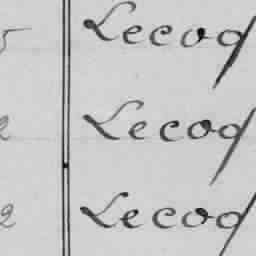 5 Lecoq
2 Lecoq
2 Lecoq